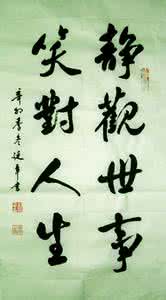 静觀世事
笑對人生
辛卯季冬延年書